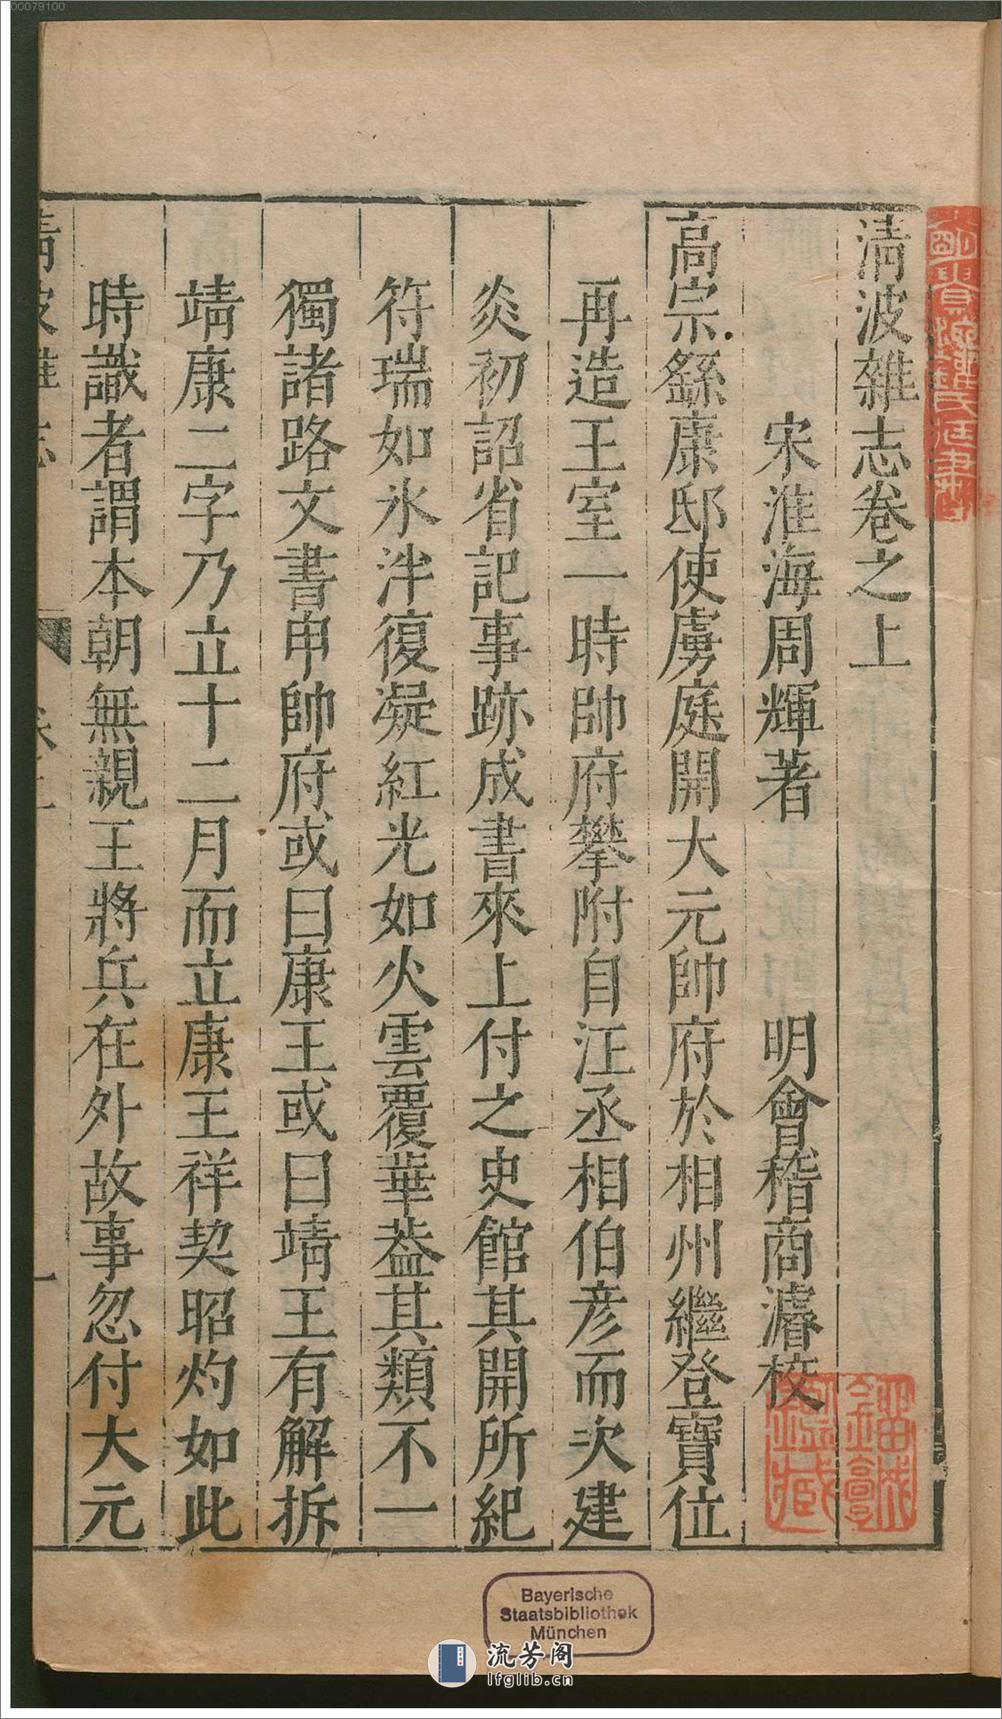 00079100
清波雜志卷之上
宋淮海周輝著 明會稽商濬校
高宗繇康邸使虜庭開大元帥府於相州繼登寶位
再造王室一時帥府攀附自汪丞相伯彦而次建
炎初詔省記事跡成書來上付之史館其開所紀
符瑞如氷泮復凝紅光如火雲覆華葢其類不一
獨諸路文書申帥府或曰康王或曰靖王有解拆
靖康二字乃立十二月而立康王祥契昭灼如此
時識者謂本朝無親王將兵在外故事忽付大元
清波雜志
卷上
一
Bayerische
Staatsbibliothek
München
流芳阁
lfglib.cn